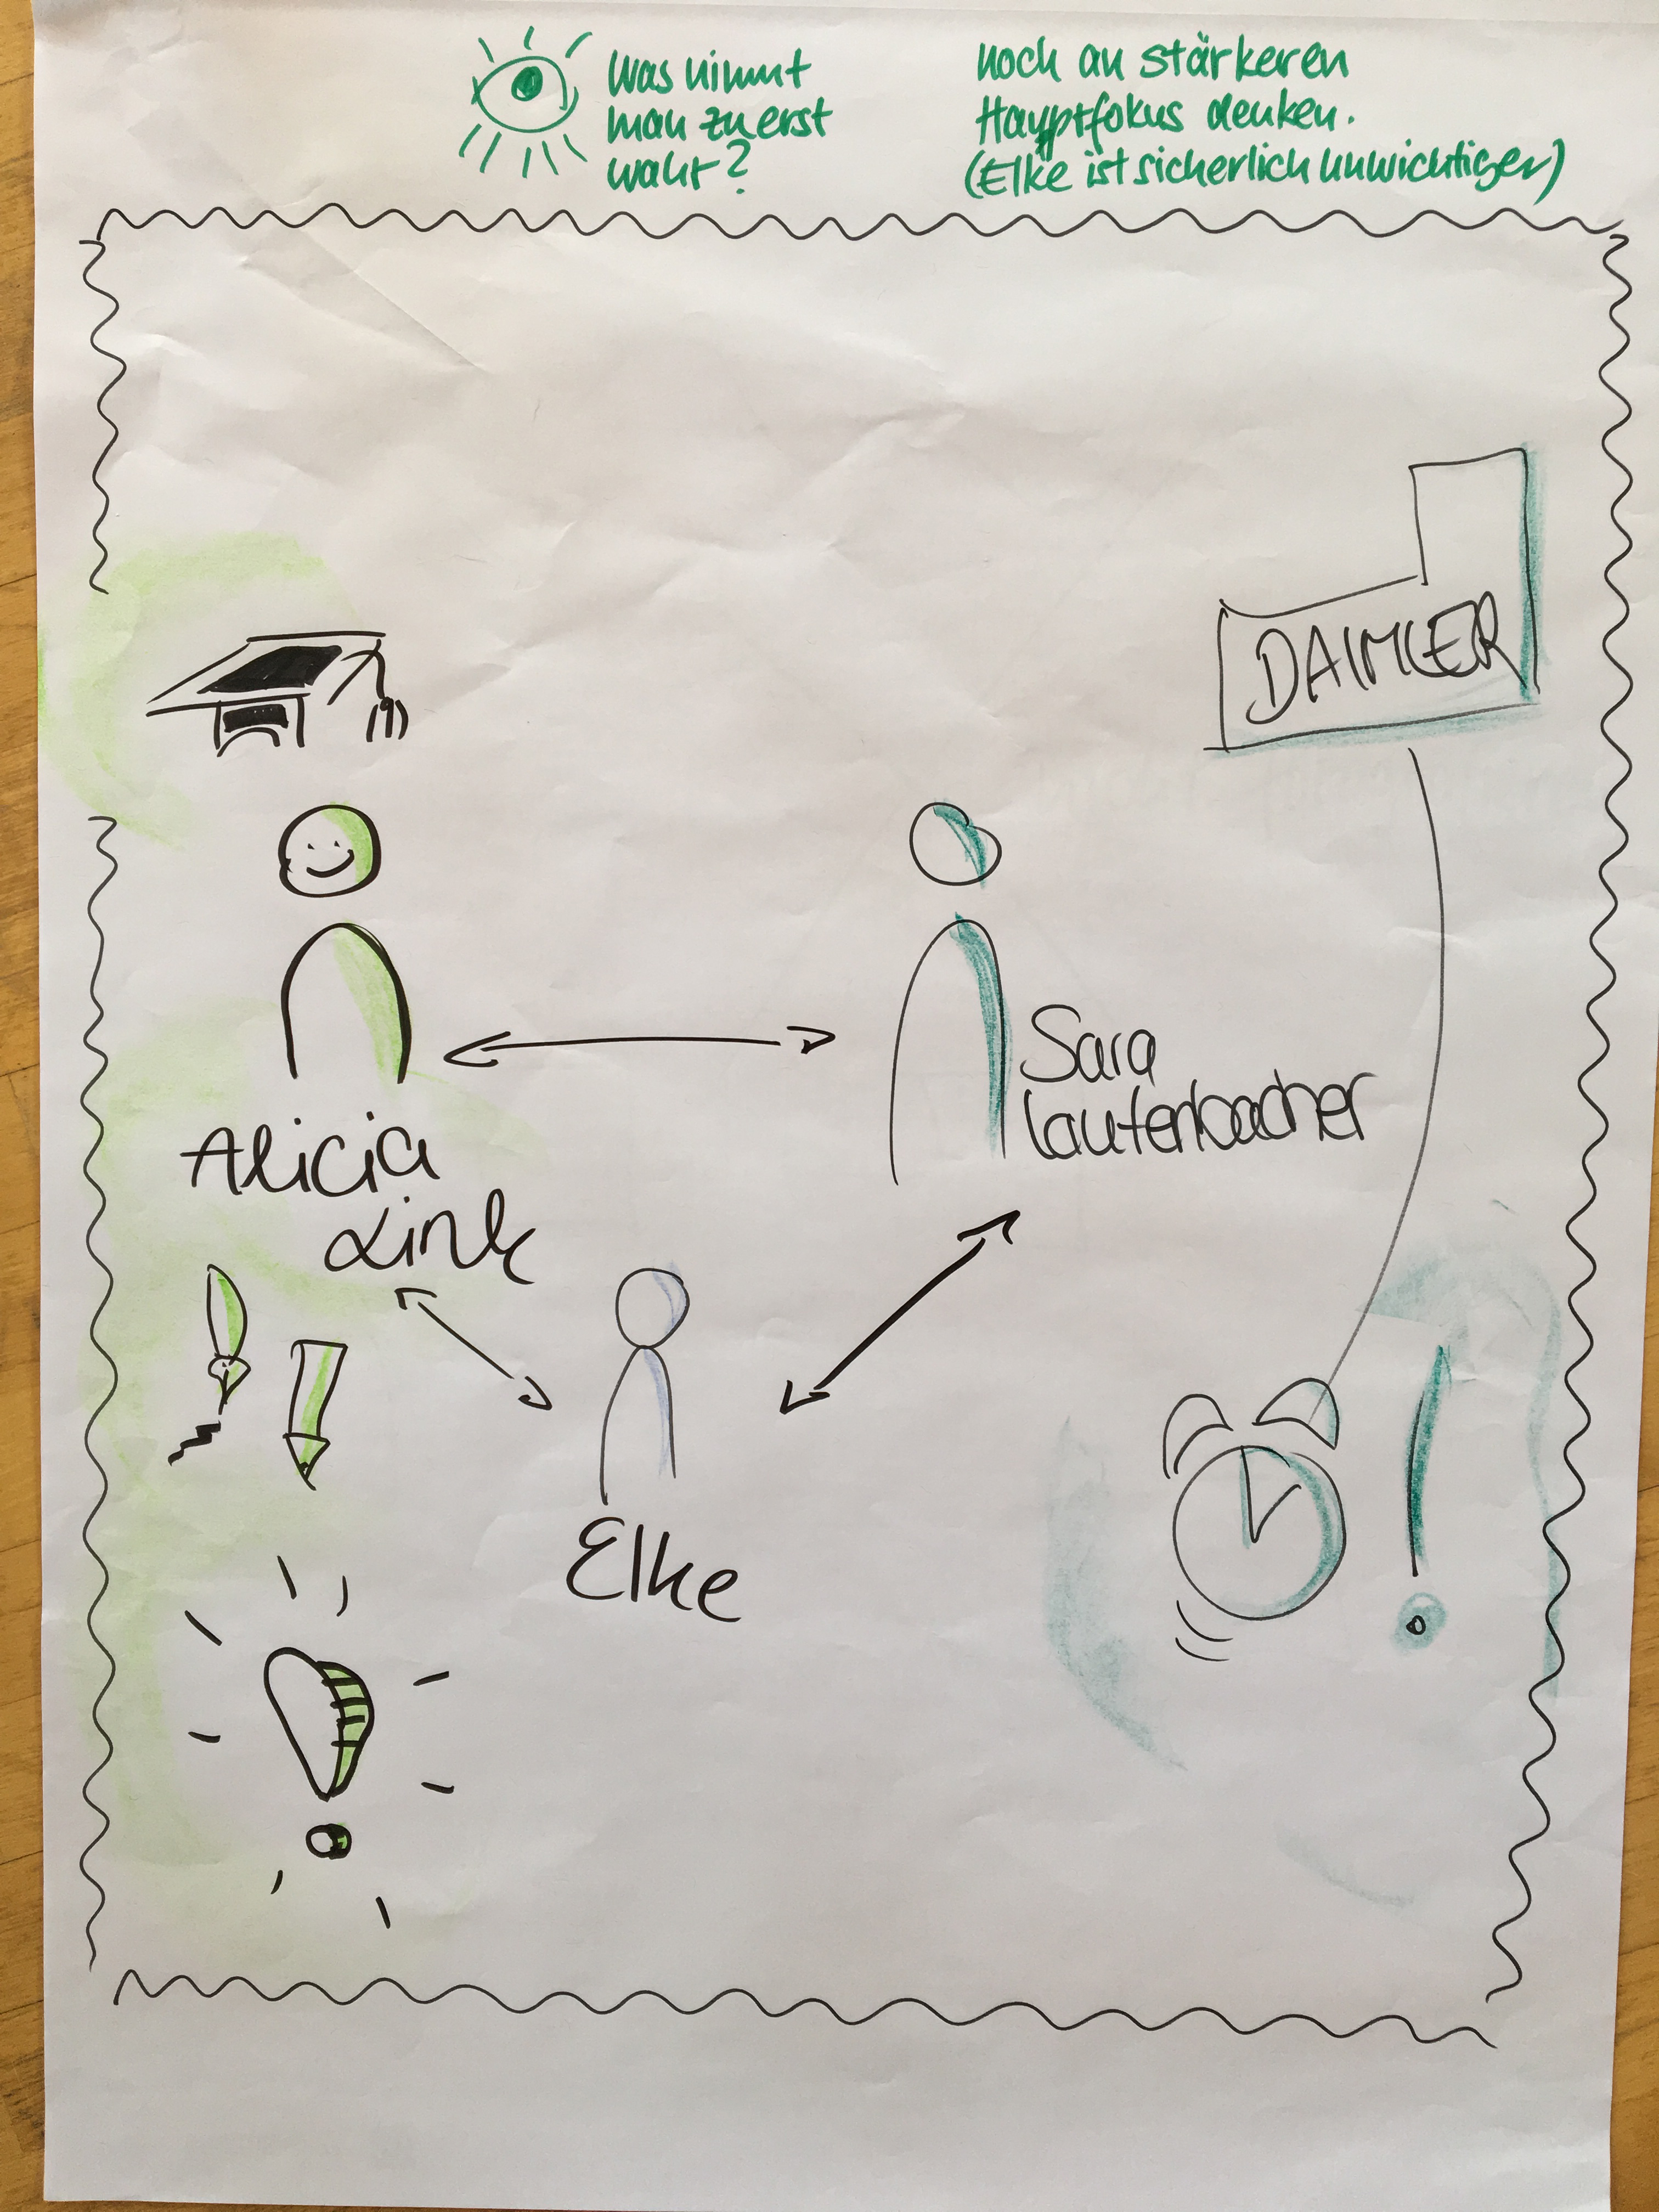 Was nimmt
man zu erst
wahr?
noch an stärkeren
Hauptfokus denken.
(Elke ist sicherlich unwichtiger)
DAIMLER
Sara
Lautenbacher
Alicia
Link
Elke